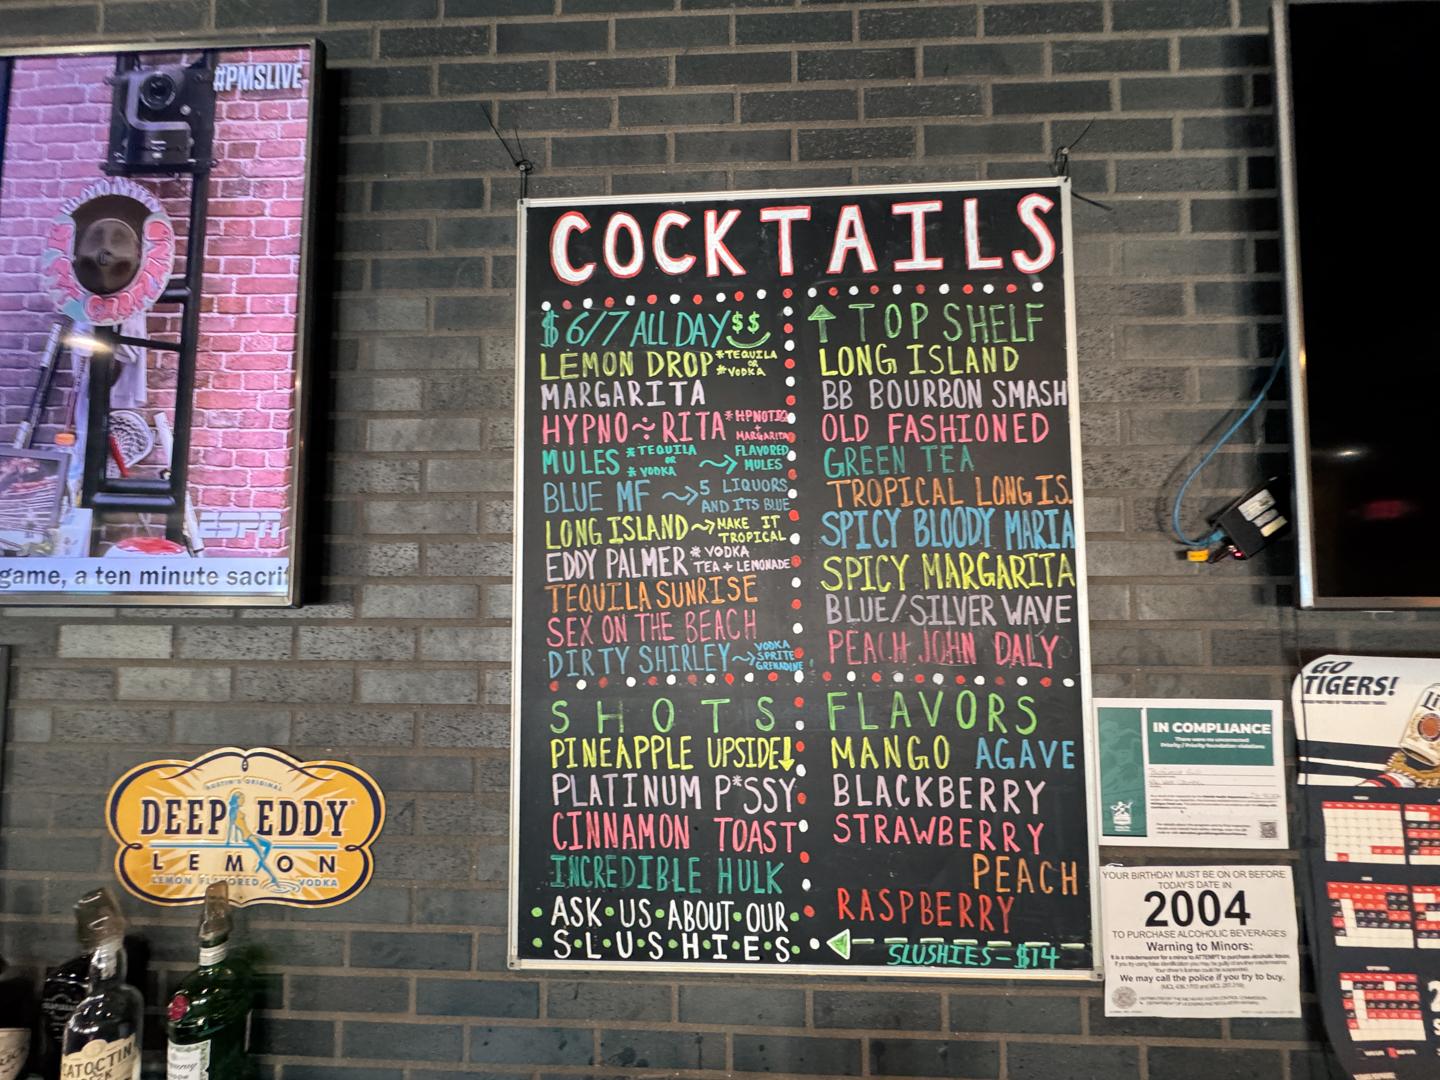 #PMSLIVE
ESPN
game, a ten minute sacrif
COCKTAILS
$ 6/7 ALL DAY $$
LEMON DROP *TEQUILA OR *VODKA
MARGARITA
HYPNO~RITA *HPNOTIQ + MARGARITA
MULES *TEQUILA OR *VODKA → FLAVORED MULES
BLUE MF → 5 LIQUORS AND IT'S BLUE
LONG ISLAND → MAKE IT TROPICAL
EDDY PALMER *VODKA TEA + LEMONADE
TEQUILA SUNRISE
SEX ON THE BEACH
DIRTY SHIRLEY → VODKA SPRITE GRENADINE
↑ TOP SHELF
LONG ISLAND
BB BOURBON SMASH
OLD FASHIONED
GREEN TEA
TROPICAL LONG IS.
SPICY BLOODY MARIA
SPICY MARGARITA
BLUE/SILVER WAVE
PEACH JOHN DALY
SHOTS
PINEAPPLE UPSIDE↓
PLATINUM P*SSY
CINNAMON TOAST
INCREDIBLE HULK
•ASK•US•ABOUT•OUR•
•S•L•U•S•H•I•E•S•
FLAVORS
MANGO AGAVE
BLACKBERRY
STRAWBERRY
PEACH
RASPBERRY
SLUSHIES - $14
AUSTIN'S ORIGINAL
DEEP EDDY
LEMON
LEMON FLAVORED VODKA
CATOCTIN
IN COMPLIANCE
There were no uncorrected
Priority / Priority foundation violations
YOUR BIRTHDAY MUST BE ON OR BEFORE
TODAY'S DATE IN
2004
TO PURCHASE ALCOHOLIC BEVERAGES
Warning to Minors:
It is a misdemeanor for a minor to ATTEMPT to purchase alcoholic beverages.
We may call the police if you try to buy.
GO
TIGERS!